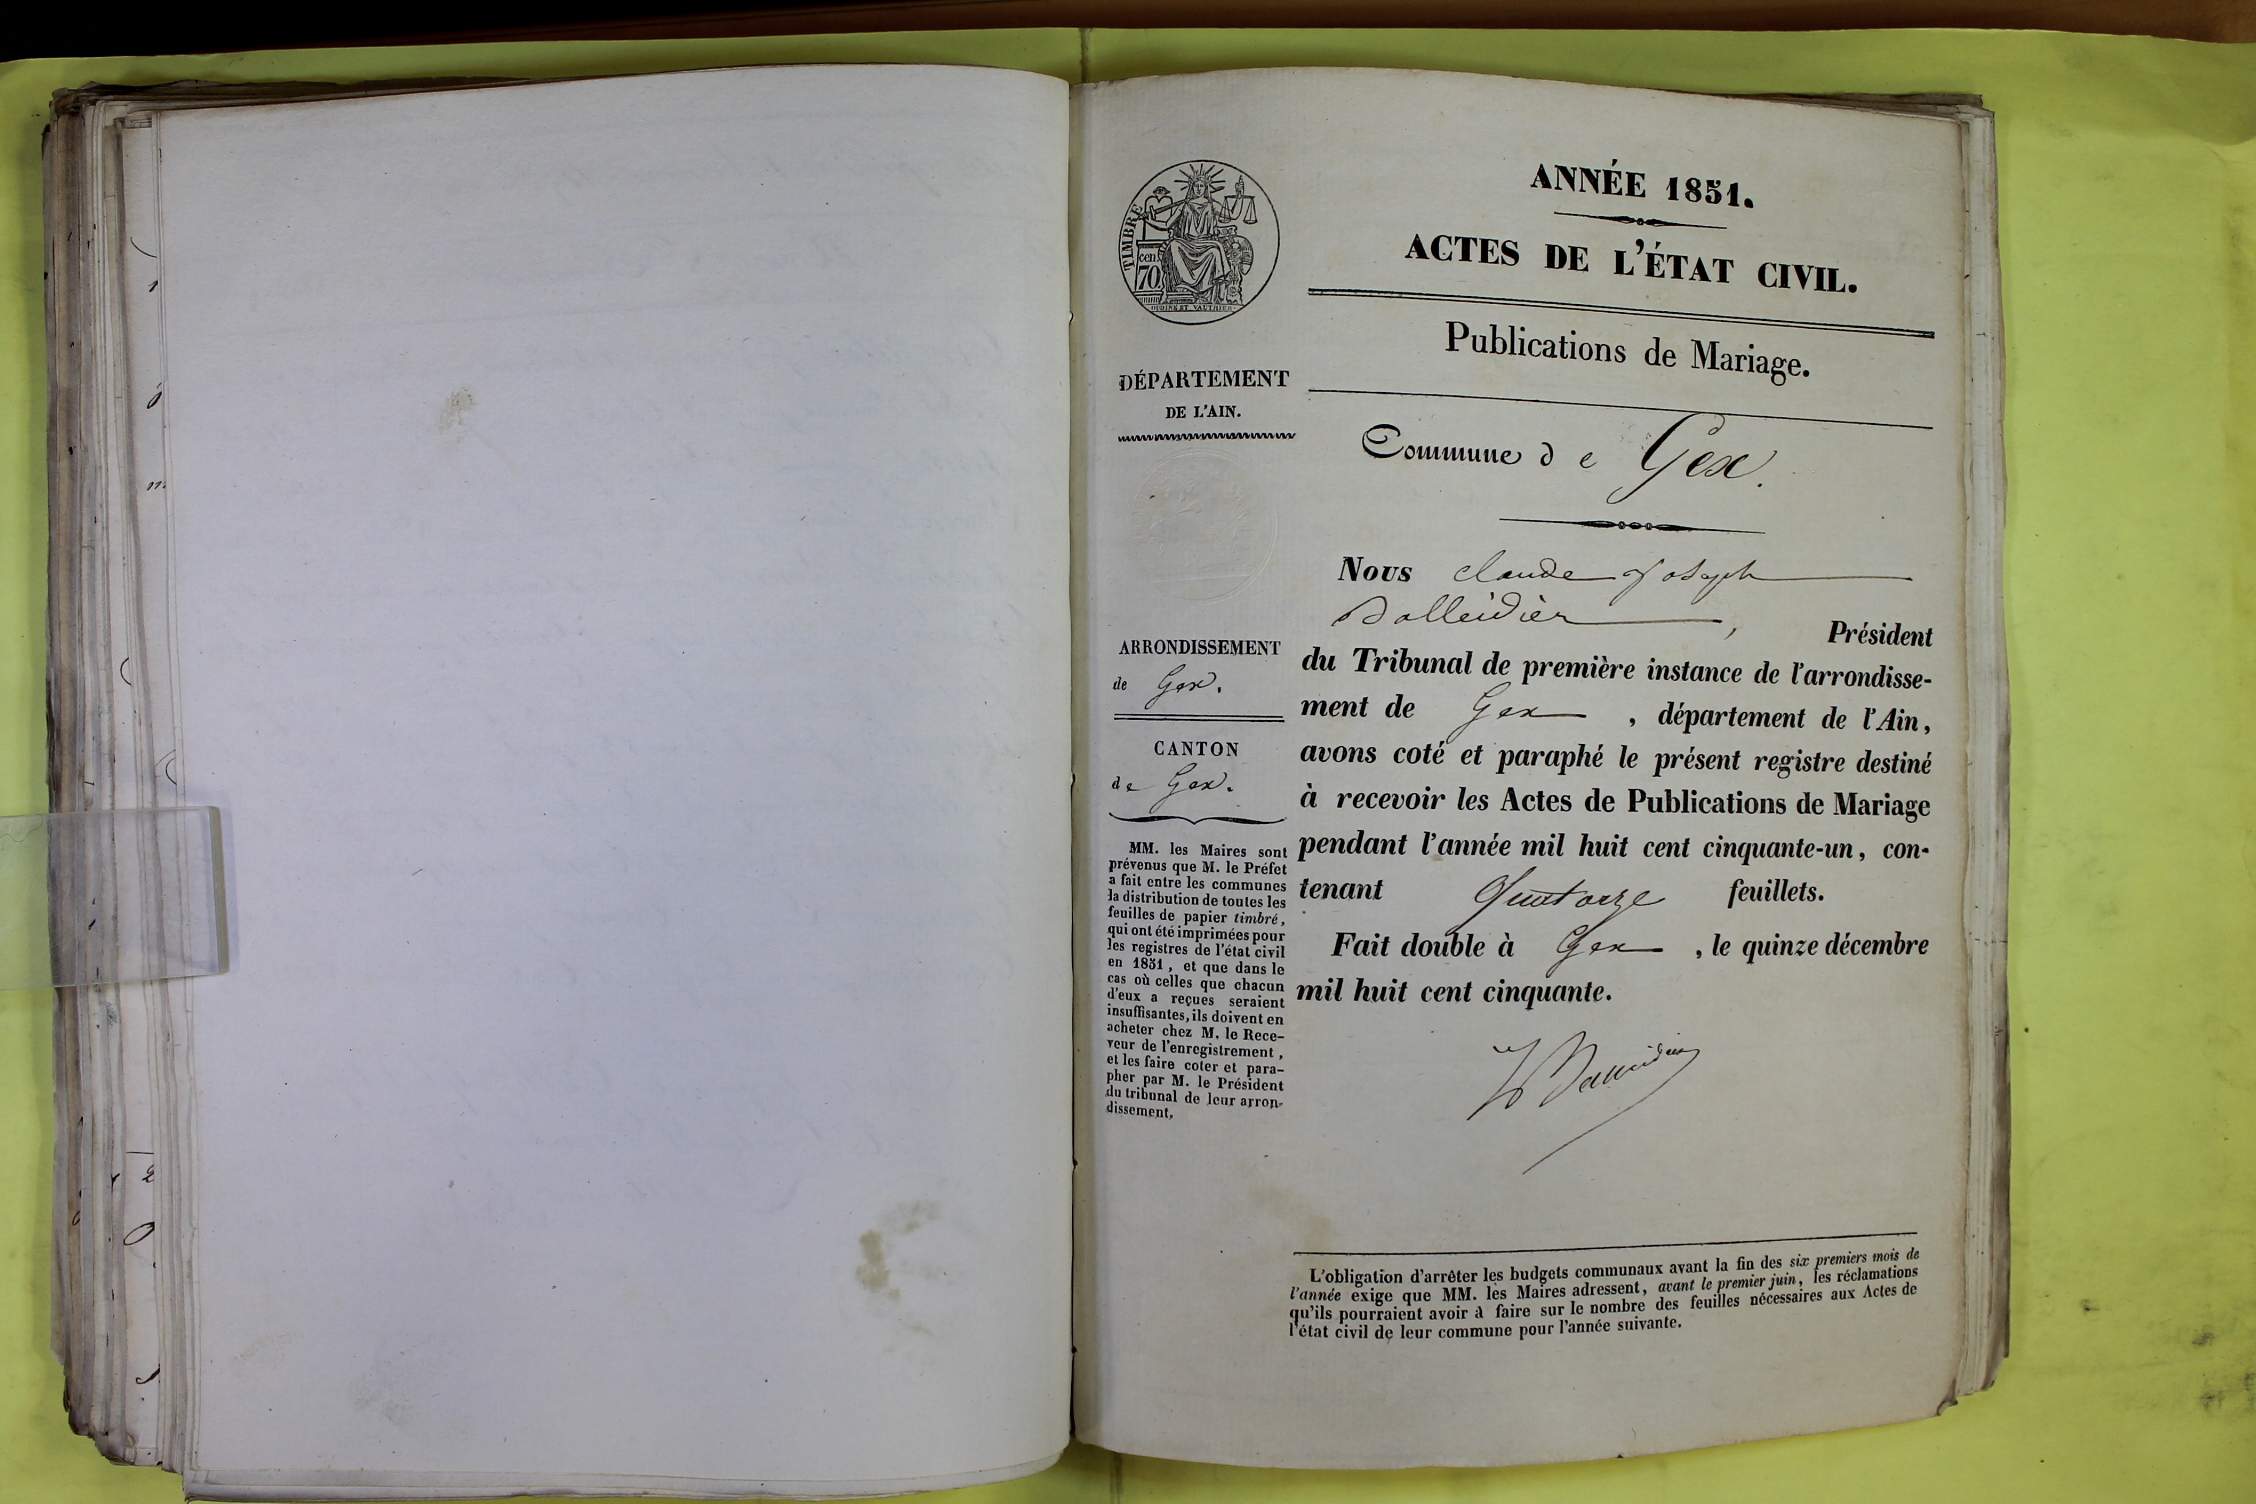 ANNÉE 1851.
ACTES DE L'ÉTAT CIVIL.
Publications de Mariage.
Commune de Gex.
TIMBRE
cen.
70
DÉPARTEMENT
DE L'AIN.
ARRONDISSEMENT
de Gex.
CANTON
de Gex.
MM. les Maires sont
prévenus que M. le Préfet
a fait entre les communes
la distribution de toutes les
feuilles de papier timbré,
qui ont été imprimées pour
les registres de l'état civil
en 1851, et que dans le
cas où celles que chacun
d'eux a reçues seraient
insuffisantes, ils doivent en
acheter chez M. le Rece-
veur de l'enregistrement,
et les faire coter et para-
pher par M. le Président
du tribunal de leur arron-
dissement,
Nous Claude Joseph
, Président
du Tribunal de première instance de l'arrondisse-
ment de Gex, département de l'Ain,
avons coté et paraphé le présent registre destiné
à recevoir les Actes de Publications de Mariage
pendant l'année mil huit cent cinquante-un, con-
tenant Quatorze feuillets.
Fait double à Gex, le quinze décembre
mil huit cent cinquante.
L'obligation d'arrêter les budgets communaux avant la fin des six premiers mois de
l'année exige que MM. les Maires adressent, avant le premier juin, les réclamations
qu'ils pourraient avoir à faire sur le nombre des feuilles nécessaires aux Actes de
l'état civil de leur commune pour l'année suivante.